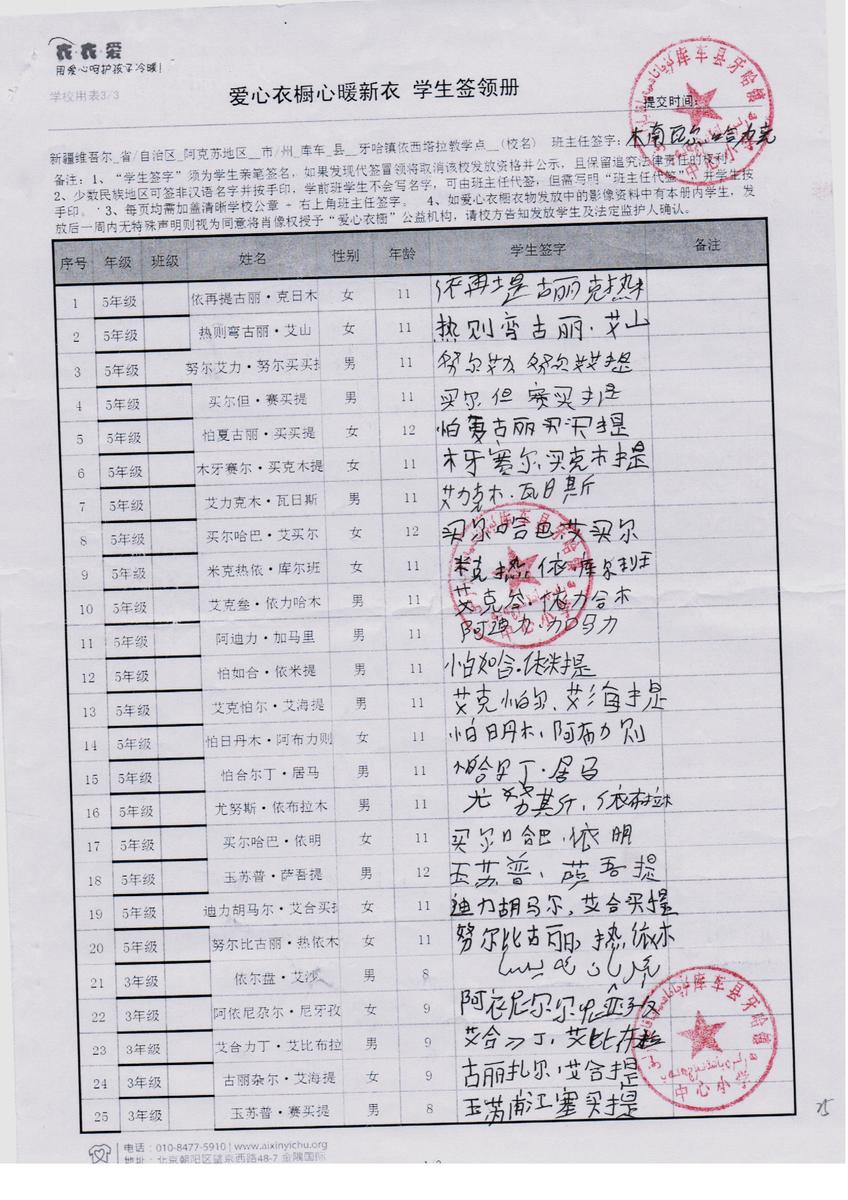 衣·衣·爱
用爱心呵护孩子冷暖!
学校用表3/3
爱心衣橱心暖新衣 学生签领册
提交时间:
新疆维吾尔_省/自治区_阿克苏地区__市/州_库车_县__牙哈镇依西塔拉教学点__(校名) 班主任签字:
备注:1、“学生签字”须为学生亲笔签名,如果发现代签冒领将取消该校发放资格并公示,且保留追究法律责任的权利。
2、少数民族地区可签非汉语名字并按手印,学前班学生不会写名字,可由班主任代签,但需写明“班主任代签”,并学生按
手印。 3、每页均需加盖清晰学校公章 + 右上角班主任签字。 4、如爱心衣橱衣物发放中的影像资料中有本册内学生,发
放后一周内无特殊声明则视为同意将肖像权授予“爱心衣橱”公益机构,请校方告知发放学生及法定监护人确认。
序号 年级 班级 姓名 性别 年龄 学生签字 备注
1 5年级 依再提古丽·克日木 女 11 依再提古丽克热木
2 5年级 热则弯古丽·艾山 女 11 热则弯古丽·艾山
3 5年级 努尔艾力·努尔买买提 男 11
4 5年级 买尔但·赛买提 男 11 买尔但 赛买提
5 5年级 怕夏古丽·买买提 女 12 怕夏古丽买买提
6 5年级 木牙赛尔·买克木提 女 11 木牙赛尔·买克木提
7 5年级 艾力克木·瓦日斯 男 11 艾力克木·瓦日斯
8 5年级 买尔哈巴·艾买尔 女 12 买尔哈巴·艾买尔
9 5年级 米克热依·库尔班 女 11 米克热依·库尔班
10 5年级 艾克叁·依力哈木 男 11 艾克叁·依力合木
11 5年级 阿迪力·加马里 男 11 阿迪力·加马力
12 5年级 怕如合·依米提 男 11 怕如合·依米提
13 5年级 艾克怕尔·艾海提 男 11 艾克怕尔·艾海提
14 5年级 怕日丹木·阿布力则 女 11 怕日丹木·阿布力则
15 5年级 怕合尔丁·居马 男 11 怕哈尔丁·居马
16 5年级 尤努斯·依布拉木 男 11 尤努斯·依布拉木
17 5年级 买尔哈巴·依明 女 11 买尔哈巴·依明
18 5年级 玉苏普·萨吾提 男 12 玉苏普·萨吾提
19 5年级 迪力胡马尔·艾合买提 女 11 迪力胡马尔,艾合买提
20 5年级 努尔比古丽·热依木 女 11 努尔比古丽·热依木
21 3年级 依尔盘·艾沙 男 8
22 3年级 阿依尼尕尔·尼牙孜 女 9
23 3年级 艾合力丁·艾比布拉 男 9 艾合力丁·艾比布拉
24 3年级 古丽杂尔·艾海提 女 9 古丽扎尔·艾合提
25 3年级 玉苏普·赛买提 男 8
库车县牙哈镇
中心小学
电话:010-8477-5910 | www.aixinyichu.org
地址:北京朝阳区望京西路48-7 金隅国际